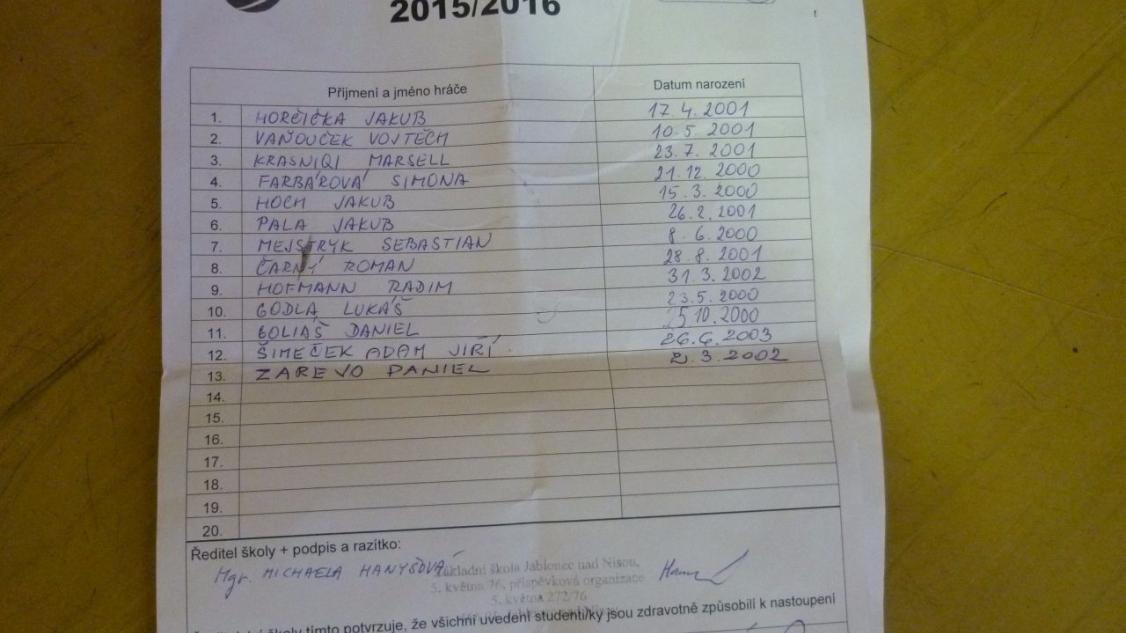 2015/2016
Příjmení a jméno hráče Datum narození
1. HORČIČKA JAKUB 17. 4. 2001
2. VAŇOUČEK VOJTĚCH 10. 5. 2001
3. KRASNIQI MARSELL 23. 7. 2001
4. FARBÁROVÁ SIMONA 21. 12. 2000
5. HOCH JAKUB 15. 3. 2000
6. PALA JAKUB 26. 2. 2001
7. MEJSTRYK SEBASTIAN 8. 6. 2000
8. ČARNÝ ROMAN 28. 8. 2001
9. HOFMANN RADIM 31. 3. 2002
10. GODLA LUKÁŠ 23. 5. 2000
11. GOLIAŠ DANIEL 25. 10. 2000
12. ŠIMEČEK ADAM JIŘÍ 26. 6. 2003
13. ZAREVO DANIEL 2. 3. 2002
14.
15.
16.
17.
18.
19.
20.
Ředitel školy + podpis a razítko:
Mgr. MICHAELA HANYŠOVÁ
Základní škola Jablonec nad Nisou,
5. května 76, příspěvková organizace
5. května 272/76
školy tímto potvrzuje, že všichni uvedení studenti/ky jsou zdravotně způsobilí k nastoupení